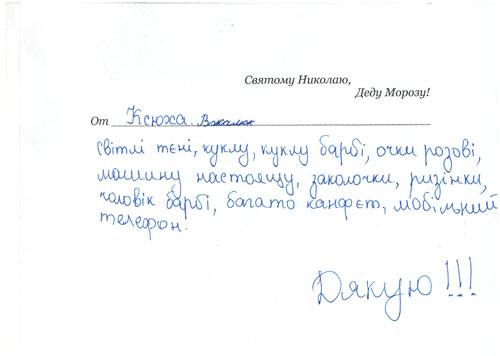 Святому Николаю,
Деду Морозу!
От Ксюха
світлі тєні, куклу, куклу барбі, очки розові,
машину настоящу, заколочки, ризінки,
чоловік барбі, багато канфєт, мобільний
телефон.
Дякую!!!